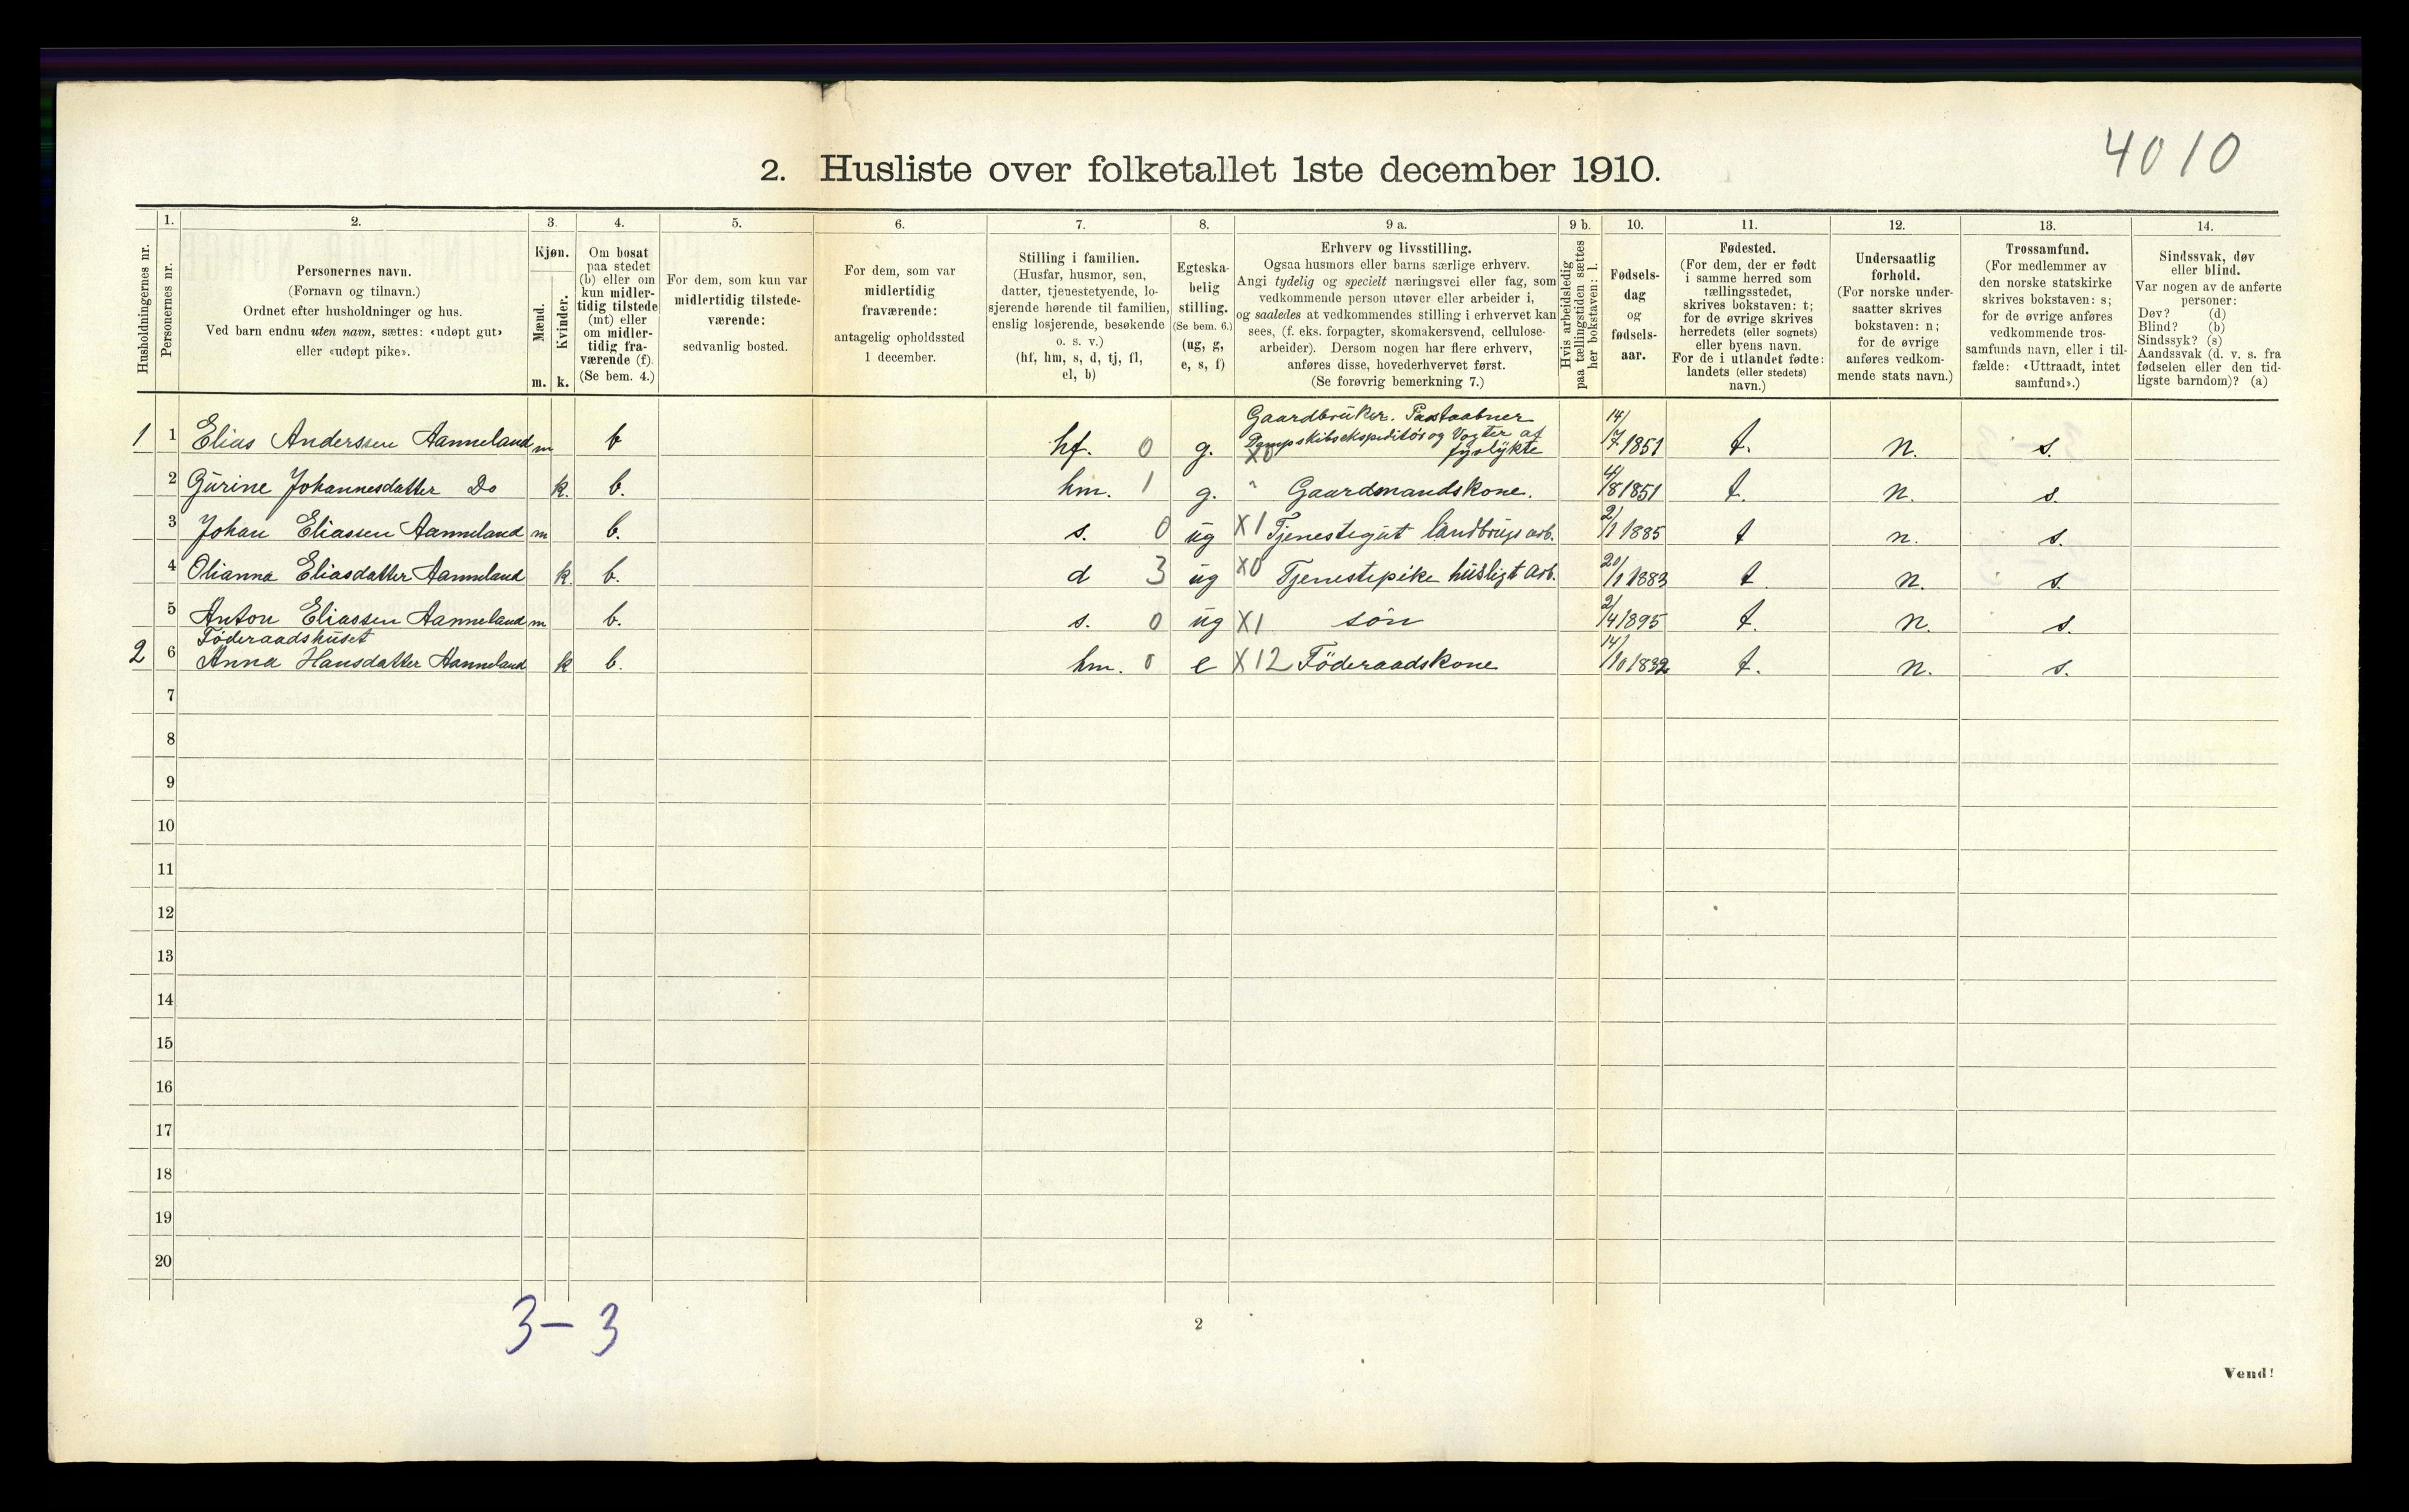 4010
2. Husliste over folketallet 1ste december 1910.
Husholdningernes nr.
1.
Personernes nr.
2.
Personernes navn.
(Fornavn og tilnavn.)
Ordnet efter husholdninger og hus.
Ved barn endnu uten navn, sættes: «udøpt gut»
eller «udøpt pike».
3.
Kjøn.
Mænd.
Kvinder.
m. k.
4.
Om bosat
paa stedet
(b) eller om
kun midler-
tidig tilstede
(mt) eller
om midler-
tidig fra-
værende (f).
(Se bem. 4.)
5.
For dem, som kun var
midlertidig tilstede-
værende:
sedvanlig bosted.
6.
For dem, som var
midlertidig
fraværende:
antagelig opholdssted
1 december.
7.
Stilling i familien.
(Husfar, husmor, søn,
datter, tjenestetyende, lo-
sjerende hørende til familien,
enslig losjerende, besøkende
o. s. v.)
(hf, hm, s, d, tj, fl,
el, b)
8.
Egteska-
belig
stilling.
(Se bem. 6.)
(ug, g,
e, s, f)
9 a.
Erhverv og livsstilling.
Ogsaa husmors eller barns særlige erhverv.
Angi tydelig og specielt næringsvei eller fag, som
vedkommende person utøver eller arbeider i,
og saaledes at vedkommendes stilling i erhvervet kan
sees, (f. eks. forpagter, skomakersvend, cellulose-
arbeider). Dersom nogen har flere erhverv,
anføres disse, hovederhvervet først.
(Se forøvrig bemerkning 7.)
9 b.
Hvis arbeidsledig
paa tællingstiden sættes
her bokstaven: l.
10.
Fødsels-
dag
og
fødsels-
aar.
11.
Fødested.
(For dem, der er født
i samme herred som
tællingsstedet,
skrives bokstaven: t;
for de øvrige skrives
herredets (eller sognets)
eller byens navn.
For de i utlandet fødte:
landets (eller stedets)
navn.)
12.
Undersaatlig
forhold.
(For norske under-
saatter skrives
bokstaven: n;
for de øvrige
anføres vedkom-
mende stats navn.)
13.
Trossamfund.
(For medlemmer av
den norske statskirke
skrives bokstaven: s;
for de øvrige anføres
vedkommende tros-
samfunds navn, eller i til-
fælde: «Uttraadt, intet
samfund».)
14.
Sindssvak, døv
eller blind.
Var nogen av de anførte
personer:
Døv? (d)
Blind? (b)
Sindssyk? (s)
Aandssvak (d. v. s. fra
fødselen eller den tid-
ligste barndom)? (a)
Gaardbruker. Postaabner
Dampskibsekspeditör og Vogter af
1 1 Elias Anderssen Aanneland m b hf. 0 g. X0 fyrlykte 14/7 1851 t. n. s.
2 Gurine Johannesdatter Do k. b. hm. 1 g. " Gaardmandskone. 4/8 1851 t. n. s.
3 Johan Eliassen Aanneland m b. s. 0 ug X1 Tjenestegut landbrugsarb. 2/1 1885 t n. s.
4 Olianna Eliasdatter Aanneland k. b. d 3 ug X0 Tjenestepike husligt arb. 20/1 1883 t n. s.
5 Anton Eliassen Aanneland m b. s. 0 ug X1 sön 2/4 1895 t. n. s.
Föderaadshuset
2 6 Anna Hansdatter Aanneland k b. hm. 0 e X12 Föderaadskone 14/10 1832 t. n. s.
7
8
9
10
11
12
13
14
15
16
17
18
19
20
3 – 3
2
Vend!